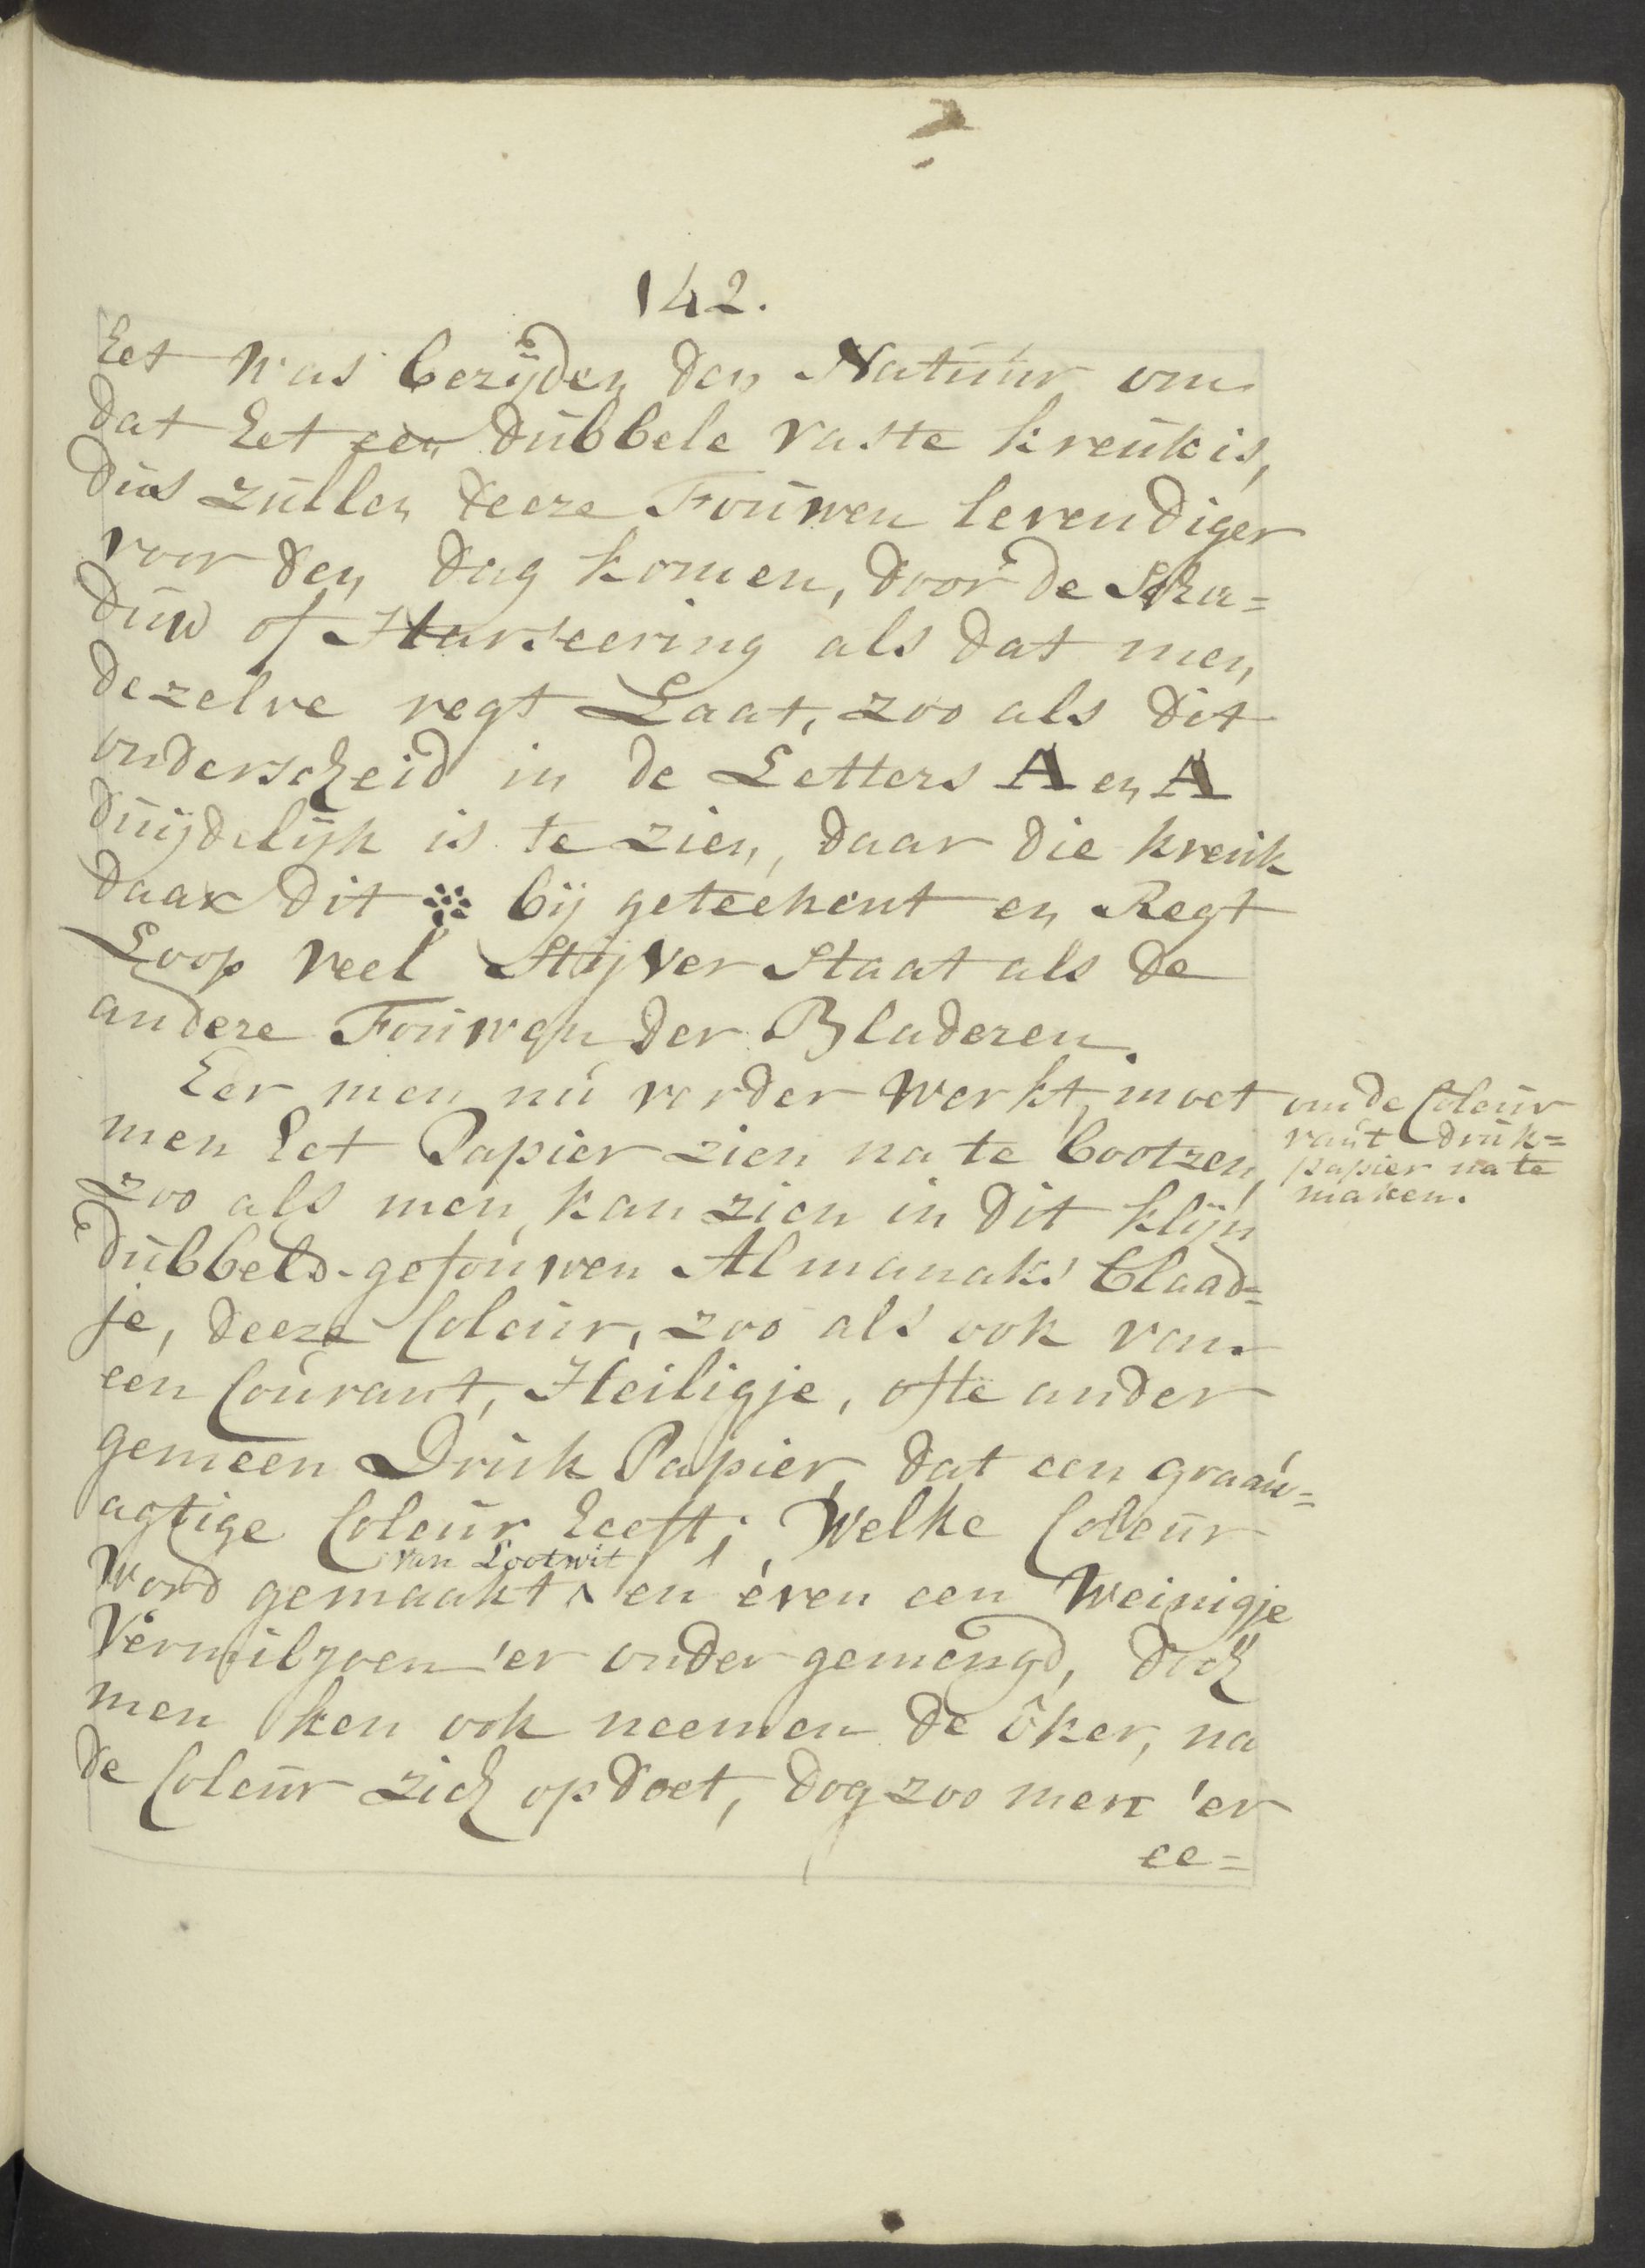 142.
het was bezijden den Natuur om
dat het een dubbele vaste kreuk is,
dus zullen deeze Fouwen levendiger
voor den dag komen, door de Scha=
duw of Harseering als dat men
dezelve regt Laat, zoo als dit
onderscheid in de Letters A en A
duijdelijk is te zien, daar die kreuk
daar dit bij geteekent en Regt
Loop veel Stijver Staat als de
andere Fouwen der Bladeren.
Eer men nu verder werkt, moet
men het Papier zien na te bootzen,
zoo als men kan zien in dit klijn
dubbeld-gefouwen Almanaks blaad=
je, deeze Coleur, zoo als ook van
een Courant, Heiligje, ofte ander
gemeen Druk Papier, dat een graau=
agtige Coleur heeft; Welke Coleur
van Lootwit
Word gemaakt ^ en even een Weinigje
Vermiljoen 'er onder gemengd, doch
men ken ook neemen de oker, na
de Coleur zich opdoet, dog zoo men 'er
ee=
om de Coleur
vant druk=
papier na te
maken.